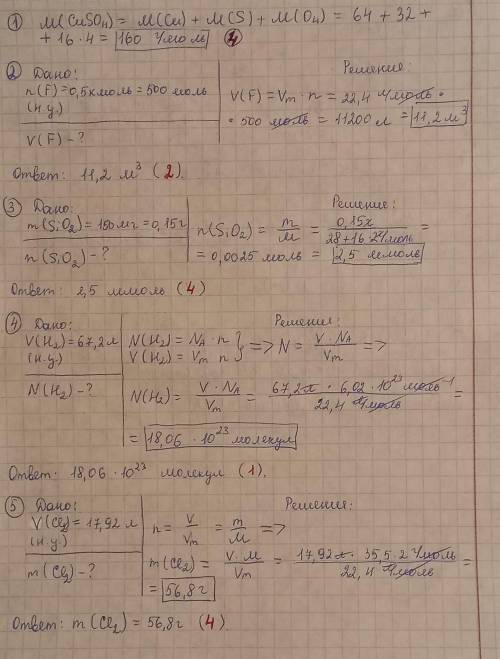 ① M(CuSO4) = M(Cu) + M(S) + M(O4) = 64 + 32 +
+ 16 · 4 = 160 г/моль (4)
② Дано:
n(F) = 0,5 кмоль = 500 моль
(н.у.)
V(F) - ?
Решение:
V(F) = Vm · n = 22,4 л/моль ·
· 500 моль = 11200 л = 11,2 м³
Ответ: 11,2 м³ (2).
③ Дано:
m(SiO2) = 150 мг = 0,15 г
n(SiO2) - ?
Решение:
n(SiO2) = m/M = 0,15 г/28+16·2 г/моль =
= 0,0025 моль = 2,5 ммоль
Ответ: 2,5 ммоль (4)
④ Дано:
V(H2) = 67,2 л
(н.у.)
N(H2) - ?
Решение:
N(H2) = NA · n
V(H2) = Vm · n } => N = V · NA/Vm =>
N(H2) = V · NA/Vm = 67,2 л · 6,02 · 10²³ моль⁻¹/22,4 л/моль =
= 18,06 · 10²³ молекул
Ответ: 18,06 · 10²³ молекул (1).
⑤ Дано:
V(Cl2) = 17,92 л
(н.у.)
m(Cl2) - ?
Решение:
n = V/Vm = m/M =>
m(Cl2) = V · M/Vm = 17,92 л · 35,5 · 2 г/моль/22,4 л/моль =
= 56,8 г
Ответ: m(Cl2) = 56,8 г (4).